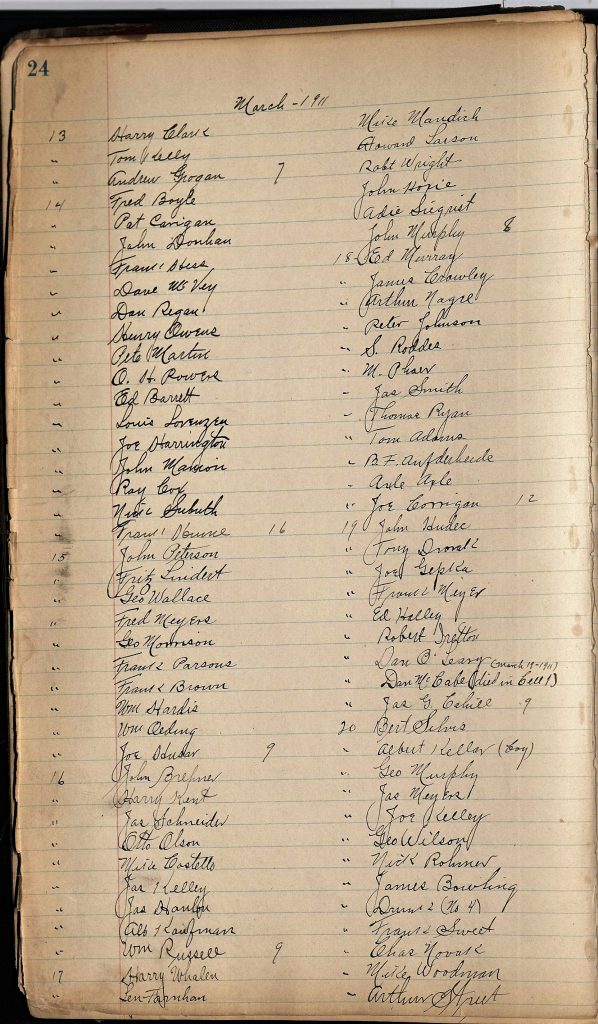 24
March - 1911
13 Harry Clark
" Tom Kelly
" Andrew Grogan 7
14 Fred Boyle
" Pat Carigan
" John Donhan
" Frank Hess
" Dave McVey
" Dan Regan
" Henry Owens
" Pete Martin
" O. H. Rowers
" Ed Barrett
" Louis Lorenzen
" Joe Harrington
" John Mannion
" Ray Cox
" Nick
" Frank 16
15 John Peterson
" Fritz Lindert
" Geo Wallace
" Fred Meyers
" Geo Morrison
" Frank Parsons
" Frank Brown
" Wm Hardis
" Wm Oeding
" Joe Husar 9
16 John Brehner
" Harry Kent
" Jas Schneider
" Otto Olson
" Mike Costello
" Jas Kelley
" Jas Hanlon
" Alb Kaufman
" Wm Russell 9
17 Harry Whalen
" Len Farnhan
Mike Mandich
Howard Larson
Robt Wright
John Hopie
Adie Siegrist
John Murphy 8
18 - Ed Murray
" James Crowley
" Arthur Nagle
" Peter Johnson
" S. Roddes
" M. Phser
- Jas Smith
- Thomas Ryan
" Tom Adams
" B.F. Aufderheide
- Axle Axle
" Joe Corrigan 12
19 John Hudec
" Tony Dvorak
" Joe Cepka
" Frank Meyer
" Ed Halley
" Robert Tretton
" Dan O'Leary (March 19-1911)
" Dan McCabe (died in Cell 1)
" Jas G. Cahill 9
20 Bert Silvis
" Albert Kellar (Boy)
" Geo Murphy
" Jas Meyers
" Joe Kelley
" Geo Wilson
" Nick Rohmer
" James Bowling
" Drunk (No 4)
" Frank Sweet
" Chas Novak
- Mike Woodman
- Arthur Street